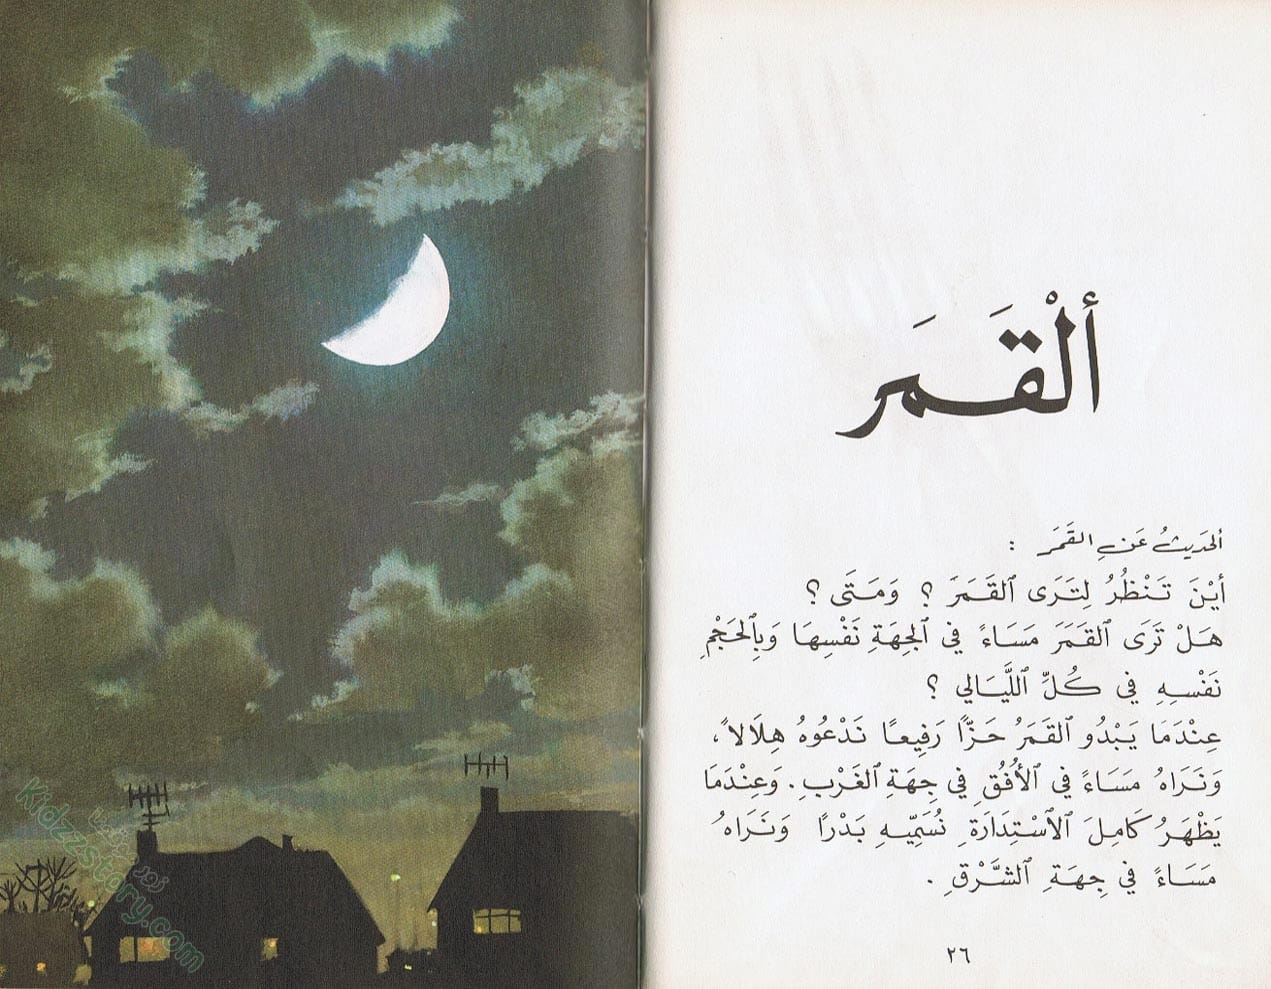 أَلْقَمَر
اَلحَدِيثُ عَنِ القَمَر :
أَيْنَ تَنْظُرُ لِتَرَى ٱلقَمَرَ ؟ وَمَتَى ؟
هَلْ تَرَى ٱلقَمَرَ مَسَاءً في ٱلجِهَةِ نَفْسِهَا وَبِٱلحَجْمِ
نَفْسِهِ في كُلِّ اللَّيَالي ؟
عِنْدَمَا يَبْدُو ٱلقَمَرُ حَزًّا رَفِيعًا نَدْعُوهُ هِلَالاً،
وَنَرَاهُ مَسَاءً في ٱلأُفُقِ في جِهَةِ ٱلغَرْبِ. وَعِنْدَمَا
يَظْهَرُ كَامِلَ ٱلاَسْتِدَارَةِ نُسَمِّيهِ بَدْرًا وَنَرَاهُ
مَسَاءً في جِهَةِ ٱلشَّرْقِ.
٢٦
Kidzzstory.com